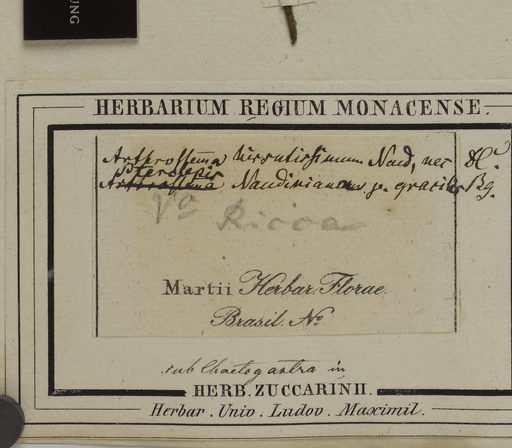 UNG
HERBARIUM REGIUM MONACENSE.
Arthrostema hirsutissimum Naud, nec DC
Pterolepis
Arthrostema Naudiniana
Bg.
Va Ricoa
Martii Herbar. Florae
Brasil. No
sub Chaetogastra in
HERB. ZUCCARINII.
Herbar. Univ. Ludov. Maximil.